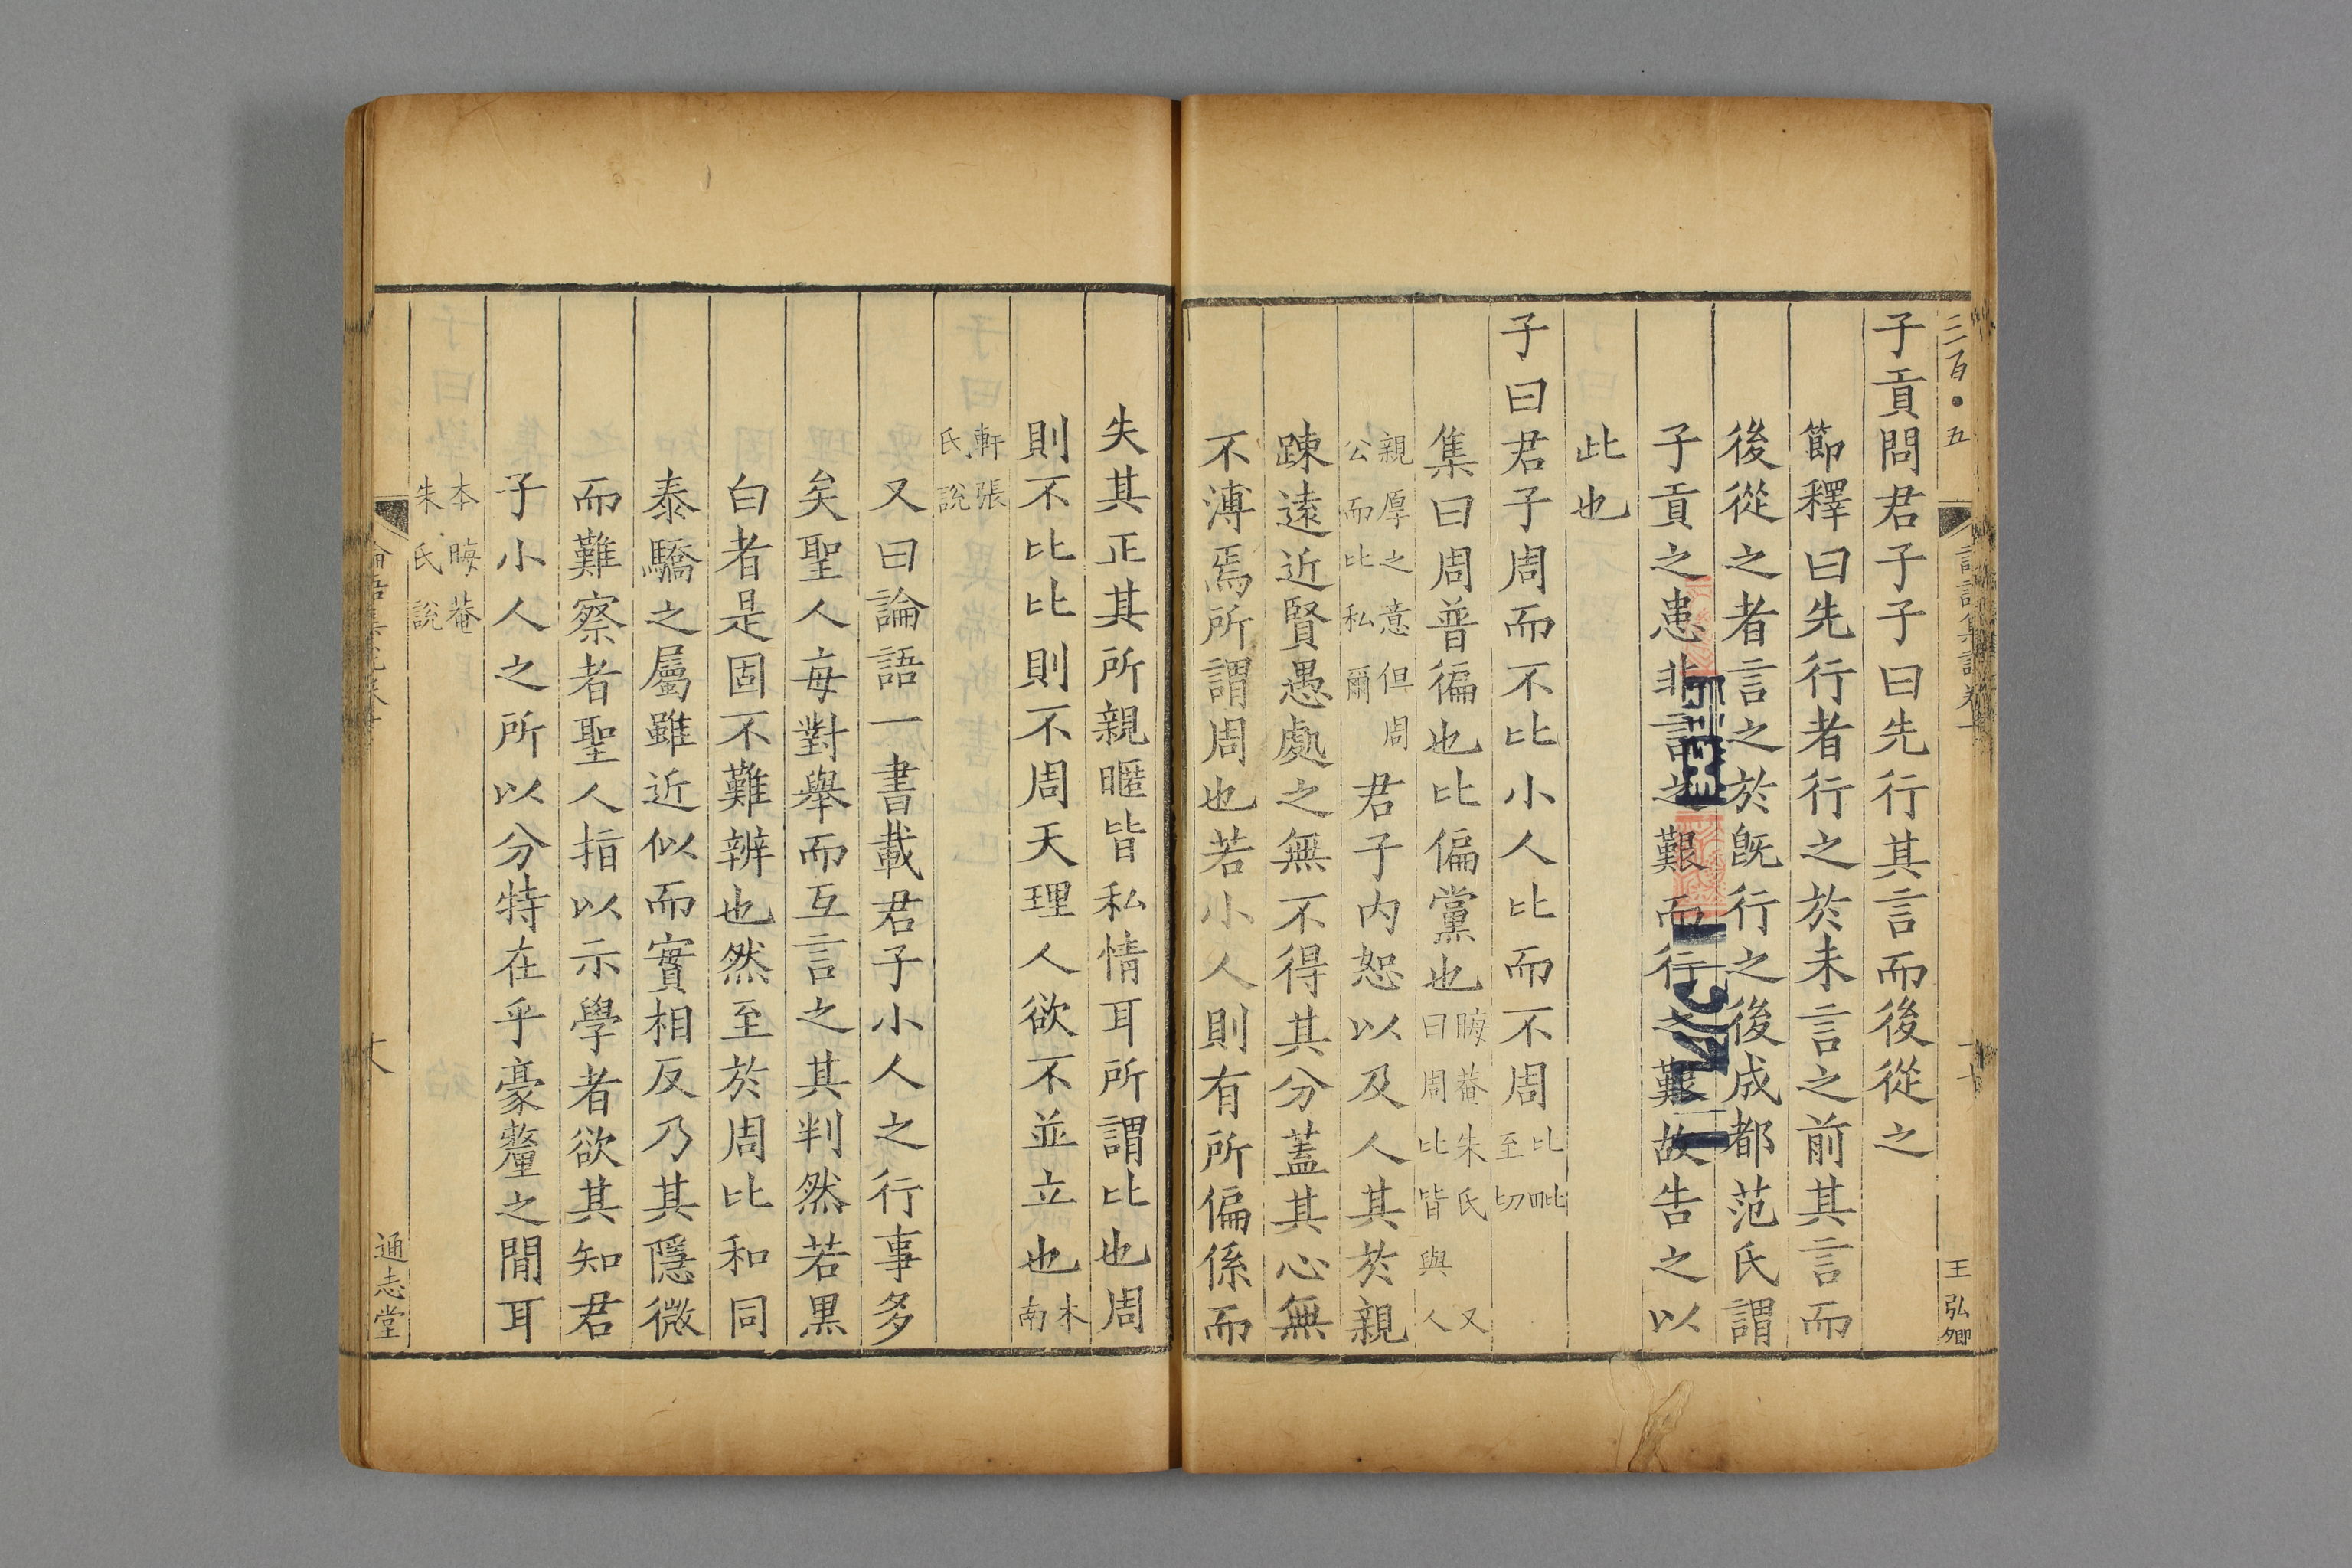 三百·五
王弘卿
子貢問君子子曰先行其言而後從之
節釋曰先行者行之於未言之前其言而
後從之者言之於旣行之後成都范氏謂
子貢之患非言之艱而行之艱故告之以
此也
子曰君子周而不比小人比而不周比毗至切
集曰周普徧也比偏黨也晦菴朱氏曰周比皆與人
又親厚之意但周公而比私爾君子內恕以及人其於親
踈遠近賢愚處之無不得其分蓋其心無
不溥焉所謂周也若小人則有所偏係而
失其正其所親暱皆私情耳所謂比也周
則不比比則不周天理人欲不並立也本南
軒張氏說
又曰論語一書載君子小人之行事多
矣聖人每對舉而互言之其判然若黑
白者是固不難辨也然至於周比和同
泰驕之屬雖近似而實相反乃其隱微
而難察者聖人指以示學者欲其知君
子小人之所以分特在乎豪釐之閒耳
本晦菴朱氏說
通志堂